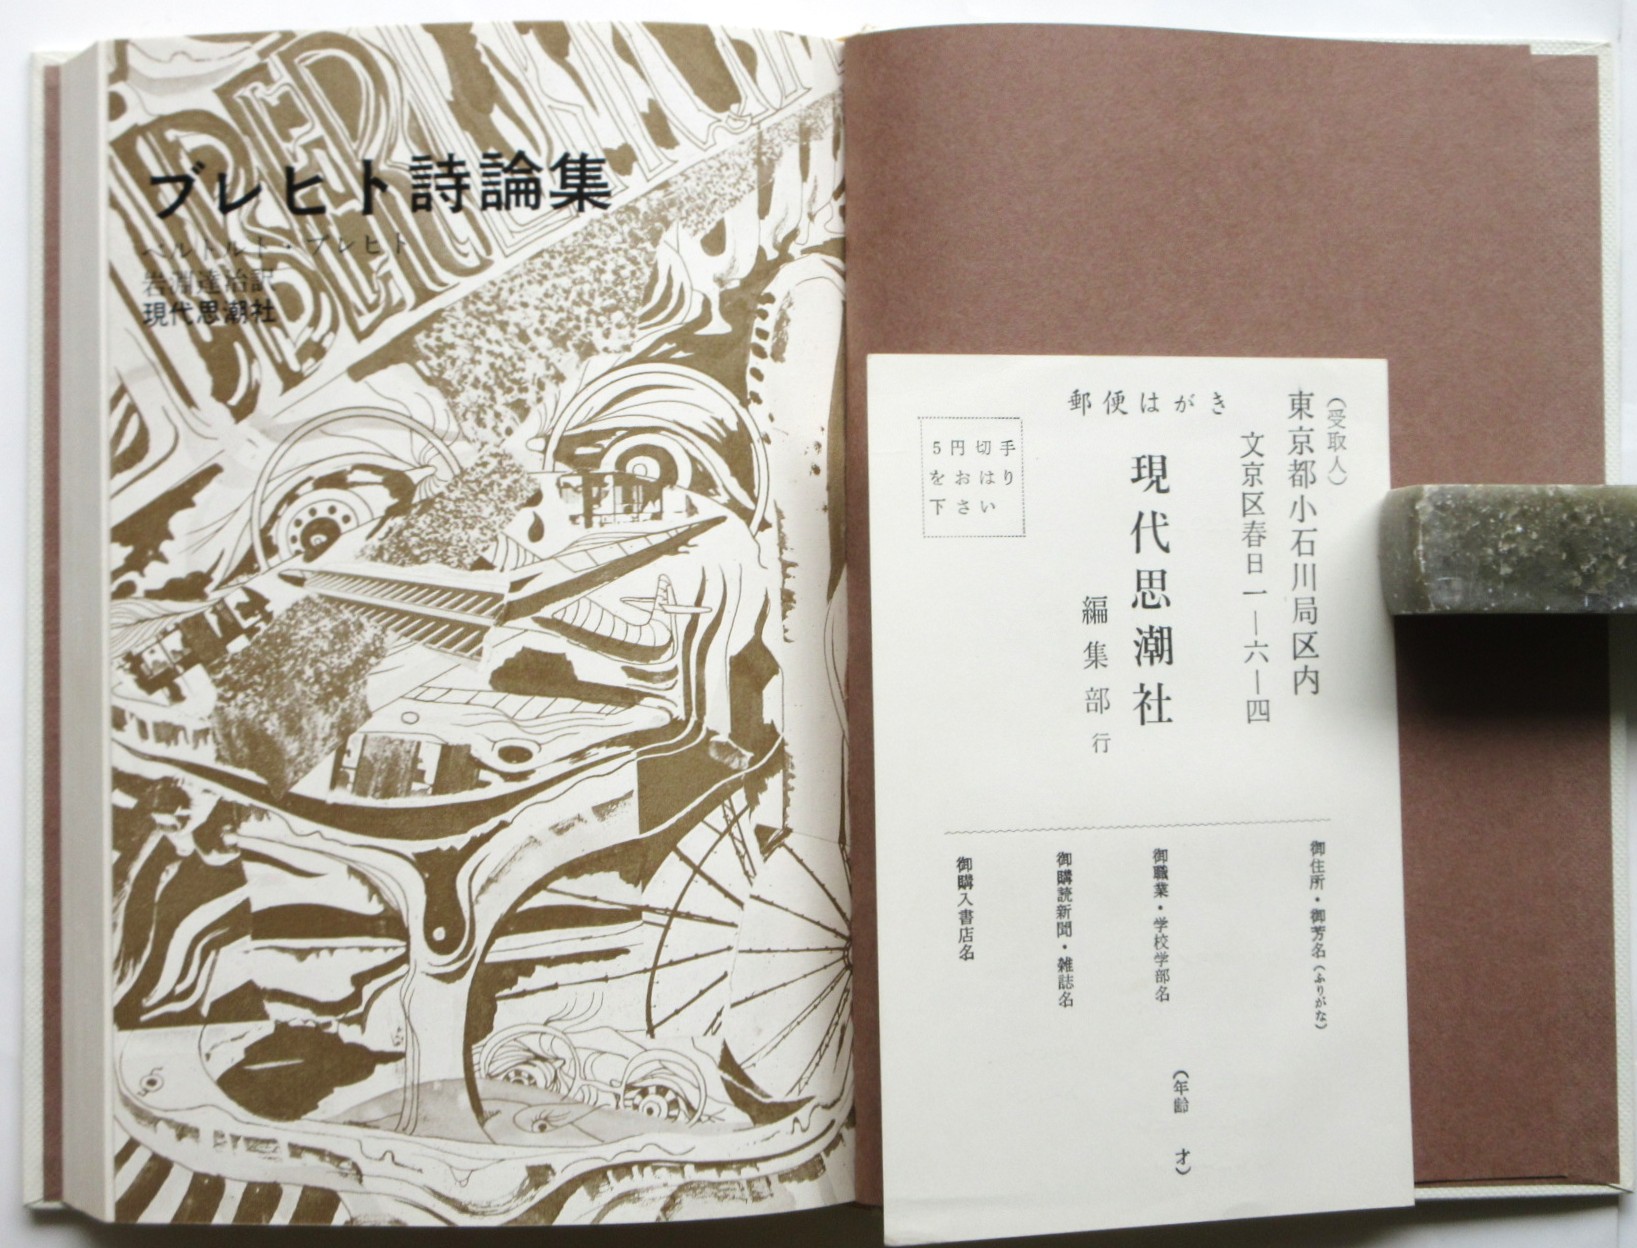 ブレヒト詩論集
ベルトルト・ブレヒト
岩淵達治訳
現代思潮社
(受取人)
東京都小石川局区内
文京区春日一―六―四
現代思潮社
編集部行
郵便はがき
5円切手
をおはり
下さい
御住所・御芳名(ふりがな)
御職業・学校学部名
(年齢 才)
御購読新聞・雑誌名
御購入書店名